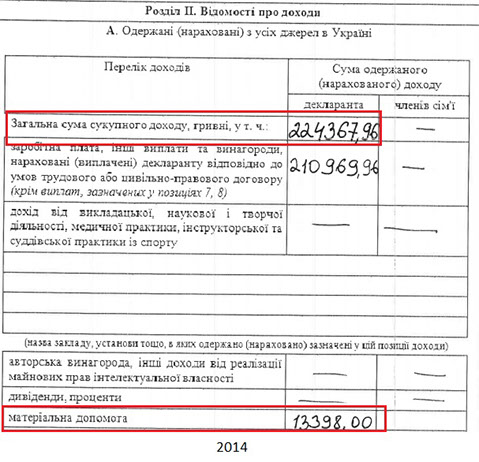 Розділ ІІ. Відомості про доходи
А. Одержані (нараховані) з усіх джерел в Україні
Перелік доходів
Сума одержаного
(нарахованого) доходу
декларанта
членів сім'ї
Загальна сума сукупного доходу, гривні, у т. ч.:
224367,96
—
заробітна плата, інші виплати та винагороди,
нараховані (виплачені) декларанту відповідно до
умов трудового або цивільно-правового договору
(крім виплат, зазначених у позиціях 7, 8)
210969,96
—
дохід від викладацької, наукової і творчої
діяльності, медичної практики, інструкторської та
суддівської практики із спорту
—
—
(назва закладу, установи тощо, в яких одержано (нараховано) зазначені у цій позиції доходи)
авторська винагорода, інші доходи від реалізації
майнових прав інтелектуальної власності
—
—
дивіденди, проценти
—
—
матеріальна допомога
13398,00
2014